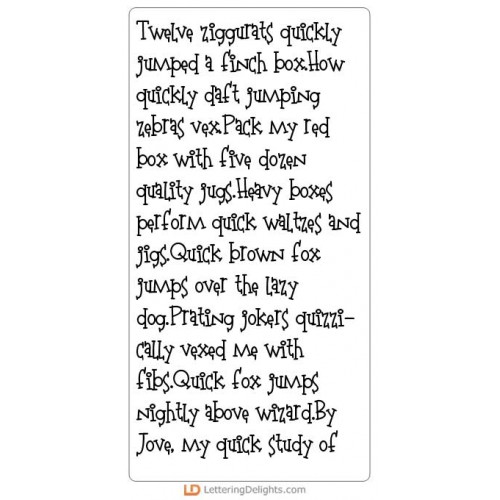 Twelve ziggurats quickly
jumped a finch box.How
quickly daft jumping
zebras vex.Pack my red
box with five dozen
quality jugs.Heavy boxes
perform quick waltzes and
jigs.Quick brown fox
jumps over the lazy
dog.Prating jokers quizzi-
cally vexed me with
fibs.Quick fox jumps
nightly above wizard.By
Jove, my quick study of
LD LetteringDelights.com